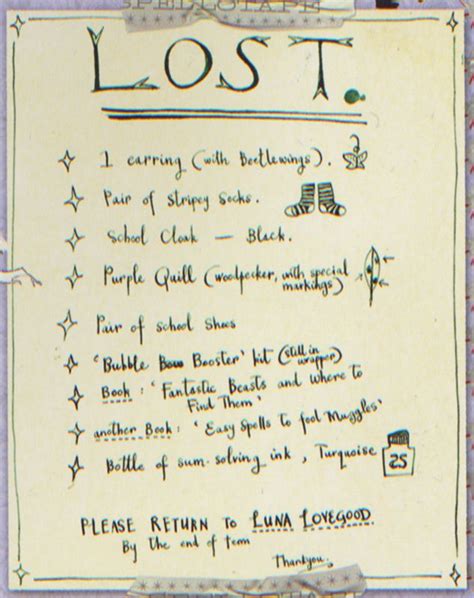 SPELLOTAPE
LOST.
1 earring (with Beetlewings).
Pair of Stripey Socks.
School Cloak — Black.
Purple Quill (woodpecker, with special
markings)
Pair of school Shoes
'Bubble Bow Booster' kit (still in
wrapper)
Book: 'Fantastic Beasts and where to
Find Them'
another Book: 'Easy Spells to fool Muggles'
Bottle of sum-solving ink, Turquoise
25
PLEASE RETURN TO LUNA LOVEGOOD
By the end of term
Thankyou.